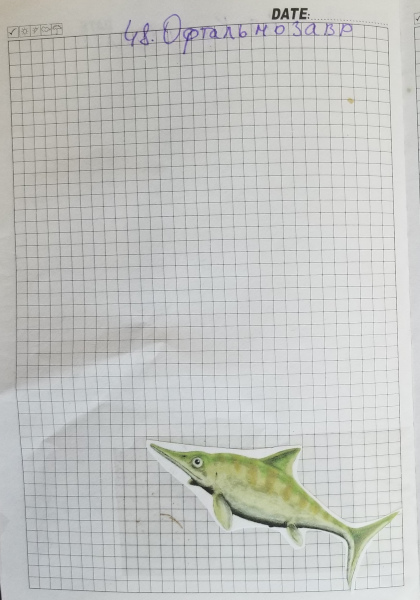 DATE:
48. Офтальмозавр